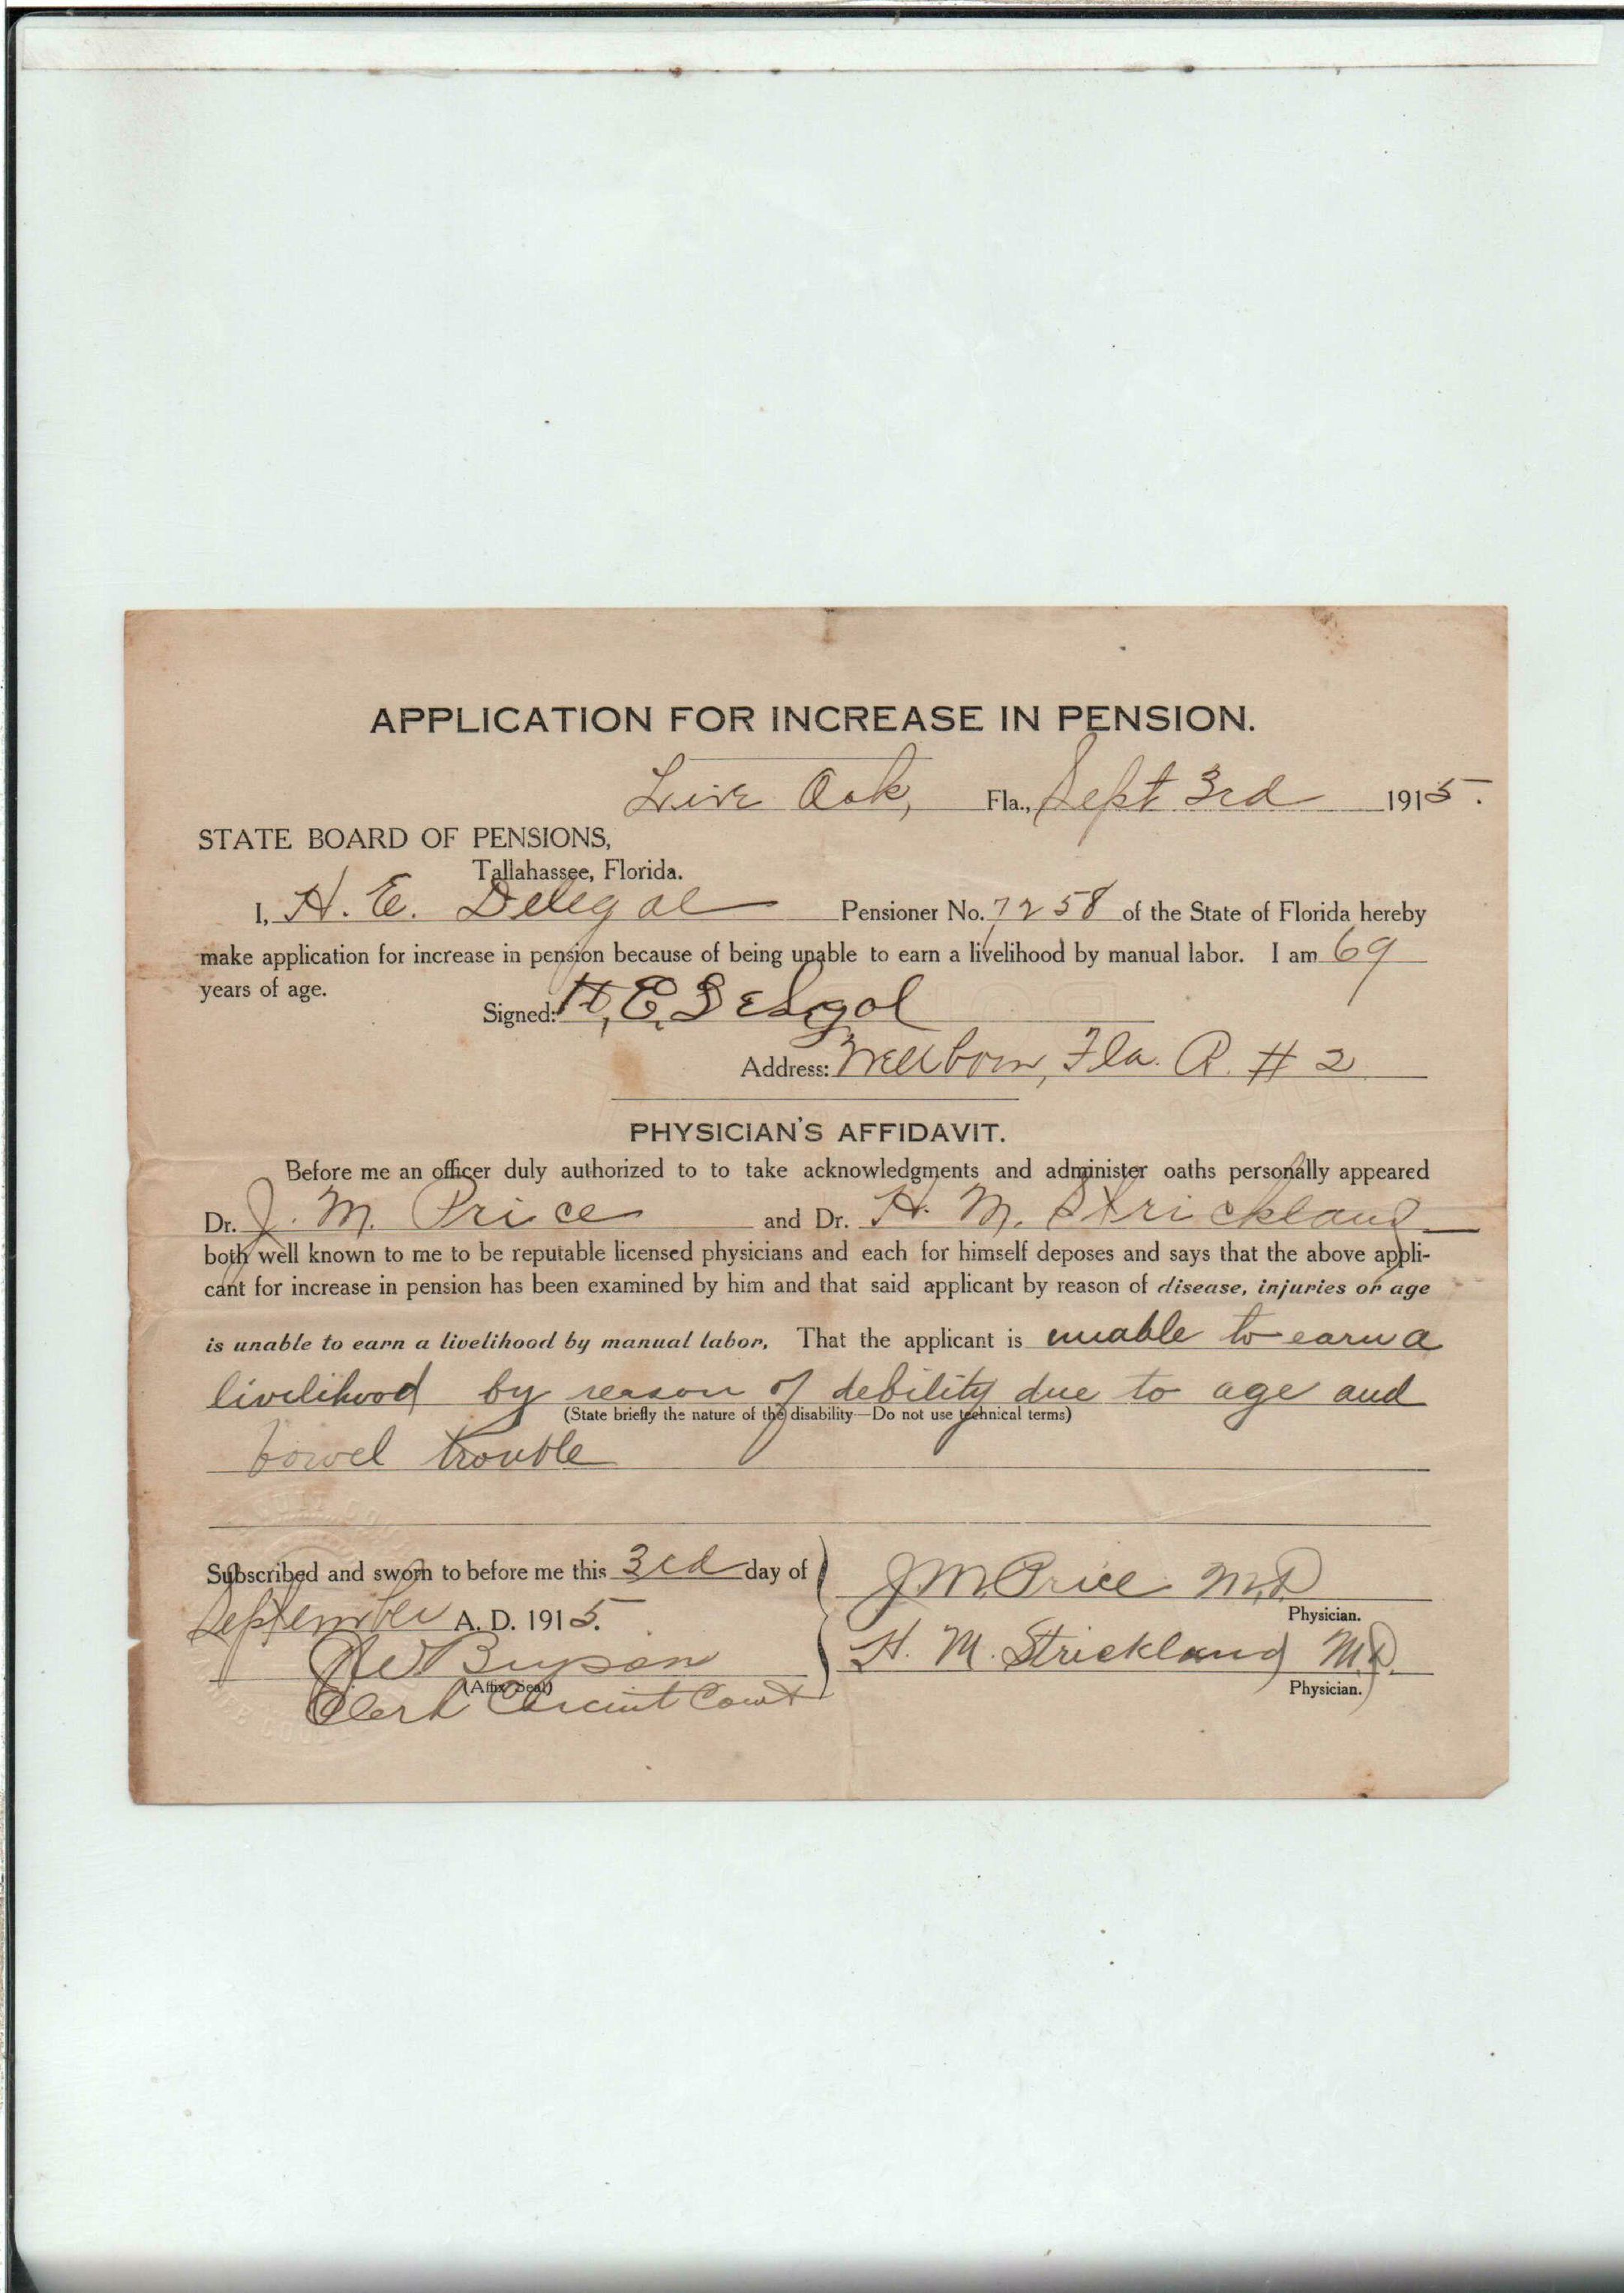 APPLICATION FOR INCREASE IN PENSION.
Live Oak, Fla., Sept 3rd 1915.
STATE BOARD OF PENSIONS,
Tallahassee, Florida.
I, H. E. Delegal Pensioner No. 7258 of the State of Florida hereby
make application for increase in pension because of being unable to earn a livelihood by manual labor. I am 69
years of age.
Signed: H, E, Delgol
Address: Wellborn, Fla. R. # 2
PHYSICIAN'S AFFIDAVIT.
Before me an officer duly authorized to to take acknowledgments and administer oaths personally appeared
Dr. J. M. Price and Dr. H. M. Strickland
both well known to me to be reputable licensed physicians and each for himself deposes and says that the above appli-
cant for increase in pension has been examined by him and that said applicant by reason of disease, injuries or age
is unable to earn a livelihood by manual labor. That the applicant is unable to earn a
livelihood by reason of debility due to age and
(State briefly the nature of the disability—Do not use technical terms)
bowel trouble
Subscribed and sworn to before me this 3rd day of
September A. D. 1915.
J W Bryson
(Affix Seal)
Clerk Circuit Court
J M Price M.D
Physician.
H. M. Strickland M.D.
Physician.